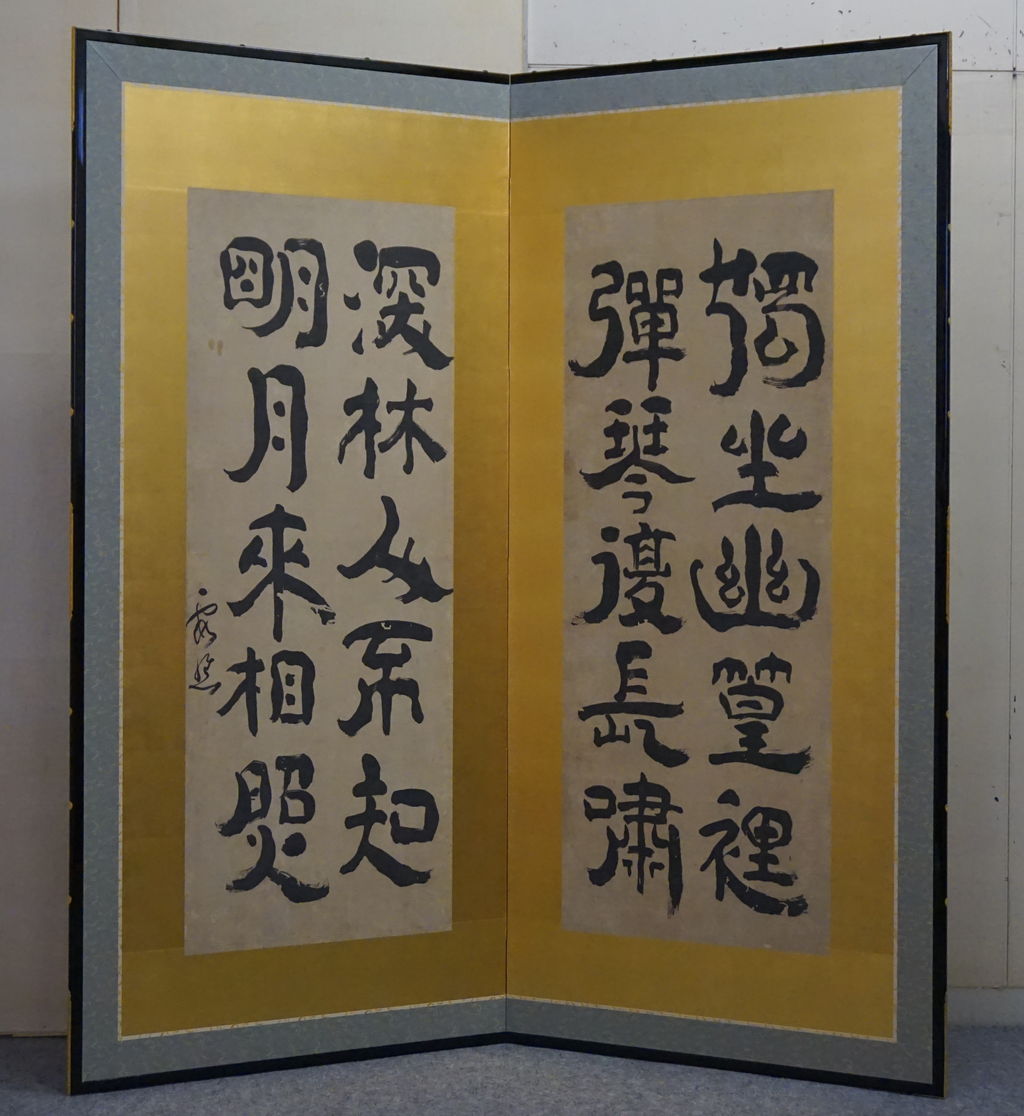 獨坐幽篁裡
彈琴復長嘯
深林人不知
明月來相照